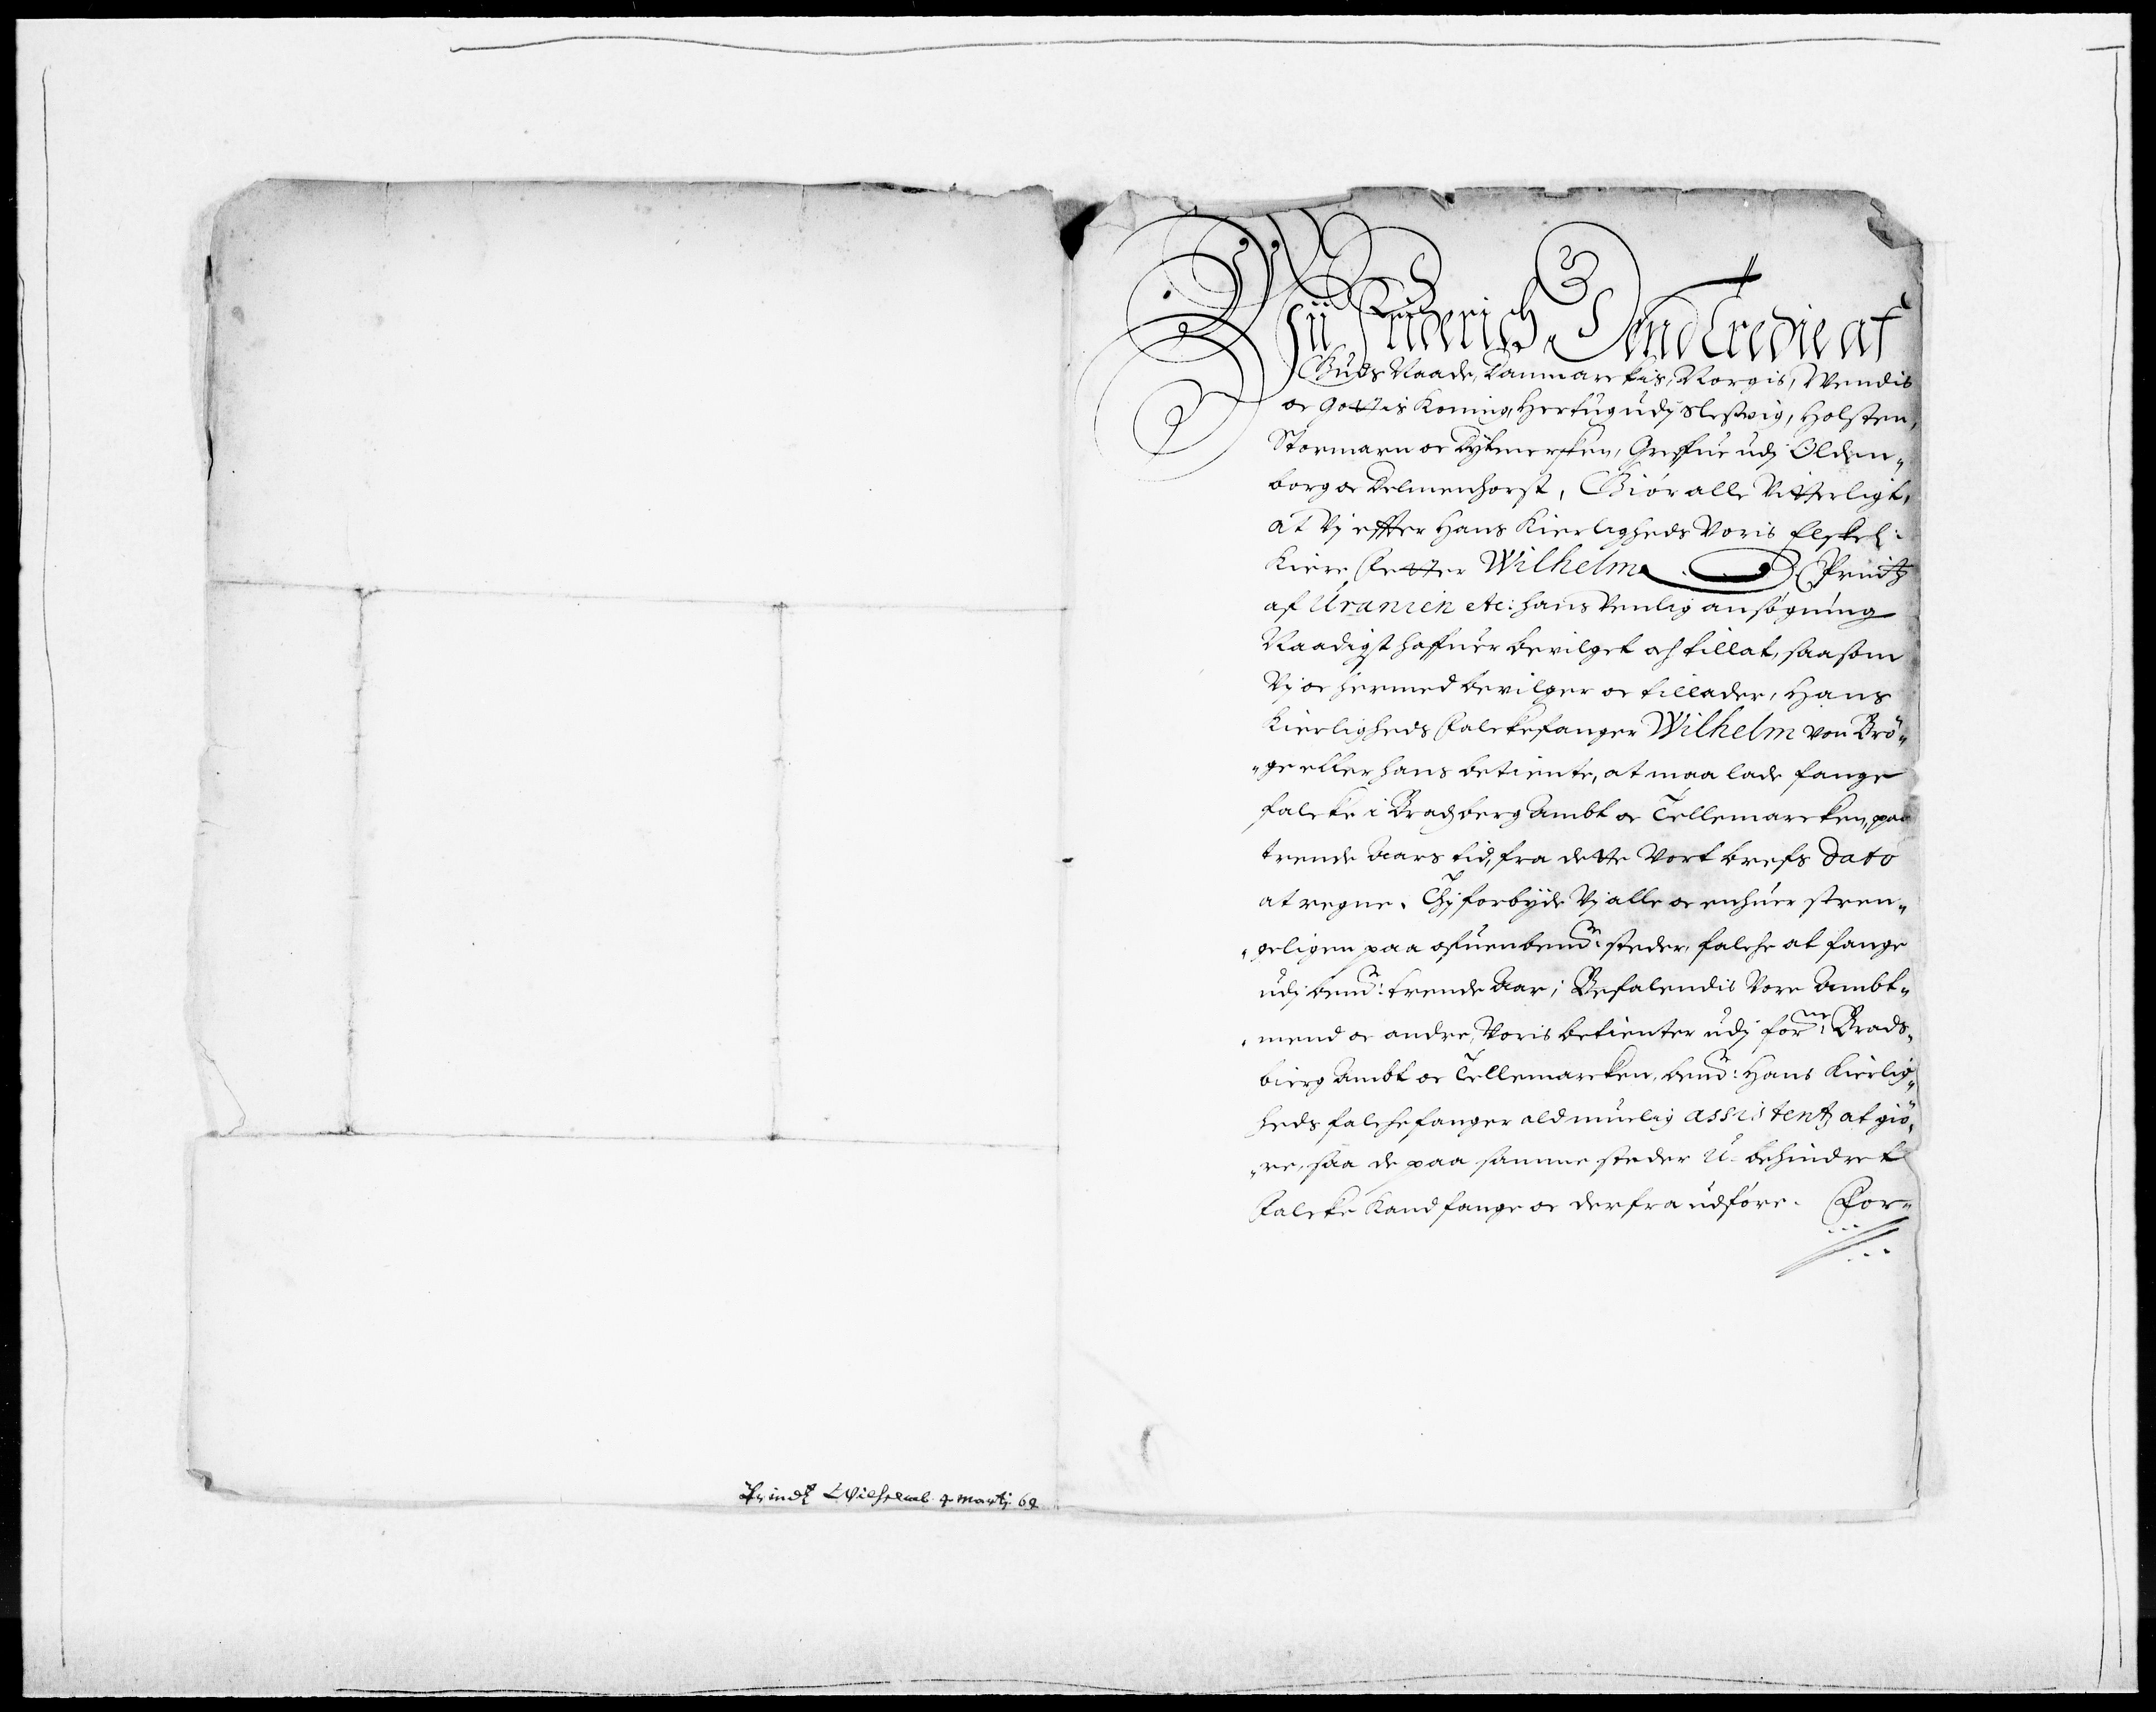 Wii Friderich Dend Tredie af
Guds Naade, Danmarckis, Norgis, Wendis
oc Gottis Koning, Hertug udj Slesvig, Holsten,
Stormarn oc Dytmersken, Greffue udj Olden„
borg oc Delmenhorst, Giør alle Vitterligt,
at Vj effter Hans Kierligheds Voris Elskel:
Kiere Fetter Wilhelm Printz
af Uranien etc: hans Venlig ansøgning
Naadigst haffuer bevilget och tillat, saasom
Vj oc hermed bevilger oc tillader, Hans
Kierligheds Falckefanger Wilhelm von Brö„
„ge eller hans betiente, at maa lade fange
falcke i Bradsberg Ambt oc Tellemarcken, paa
trende Aars tid, fra dette Vort brefs Dato
at regne. Thj forbyde Vj alle oc enhuer stren„
„geligen paa ofuenbemde: steder, falche at fange
udj bemde: trende Aar; Befalendis Vore Ambt„
„mend oc andre Voris betienter udj forne: Brads„
bierg Ambt oc Tellemarcken, bemde: Hans Kierlig„
heds falchefanger ald muelig assistentz at giö„
„re, saa de paa samme steder U-behindret
Falcke Kand fange oc derfra udføre. For„
Printz Wilhelmb 4 Martij 62